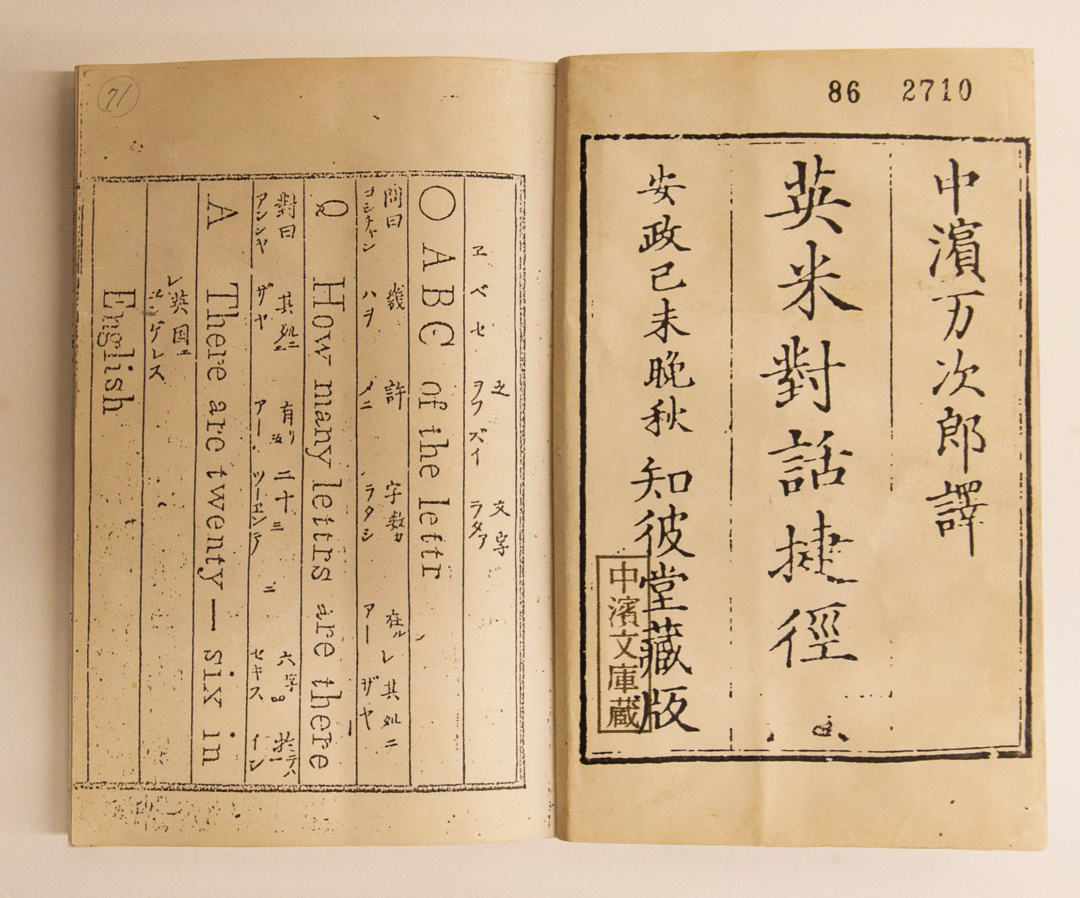 86 2710
中濱万次郎譯
英米對話捷徑
安政己未晩秋 知彼堂藏版
中濱文庫蔵
71
之 文字
ヱ ベ セ ヲフ ズイ ラタア
○ ABC of the lettr
問曰 幾 許 字数 在ル 其処ニ
ハヲ メニ ラタシ アー ザヤ
Q How many lettrs are there
對曰 其処ニ 有リ 二十三 六字
アンシヤ ザヤ アー ツーエンテ ニ セキス イン
A There are twenty — six in
レ英国
ゲレス
English